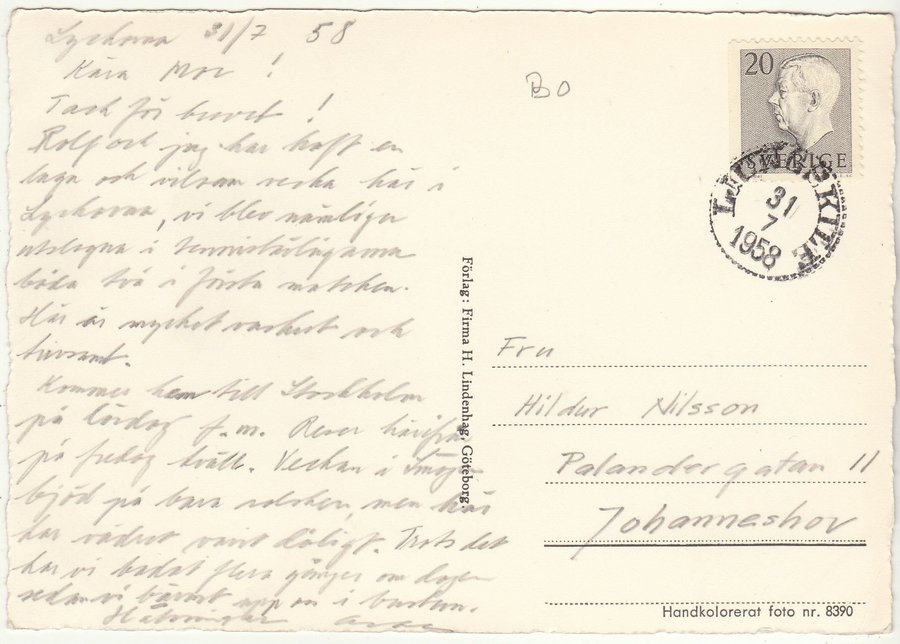 Lyckorna 31/7 58
Kära Mor!
Tack för brevet!
Rolf och jag har haft en
lugn och vilsam vecka här i
Lyckorna, vi blev nämligen
utslagna i tennistävlingarna
båda två i första matchen.
Här är mycket vackert och
trivsamt.
Kommer hem till Stockholm
på lördag f.m. Reser härifrån
på fredag kväll. Veckan i Smögen
bjöd på bara solsken, men här
har vädret varit dåligt. Trots det
har vi badat flera gånger om dagen
sedan vi värmt upp oss i bastun.
Hälsningar
BO
20
SVERIGE
LJUNGSKILE
31
7
1958
Förlag: Firma H. Lindenhag, Göteborg.
Fru
Hildur Nilsson
Palandergatan 11
Johanneshov
Handkolorerat foto nr. 8390